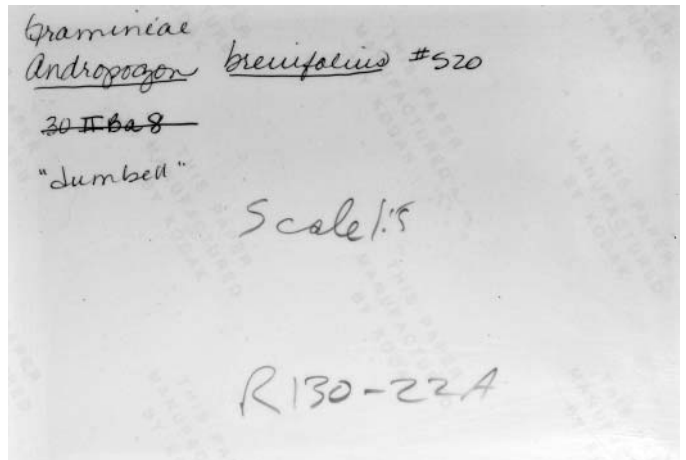 Gramineae
Andropogon brevifolius #520
30 II Ba 8
"dumbell"
Scale 1:5
R130-22A
THIS PAPER
MANUFACTURED
BY KODAK